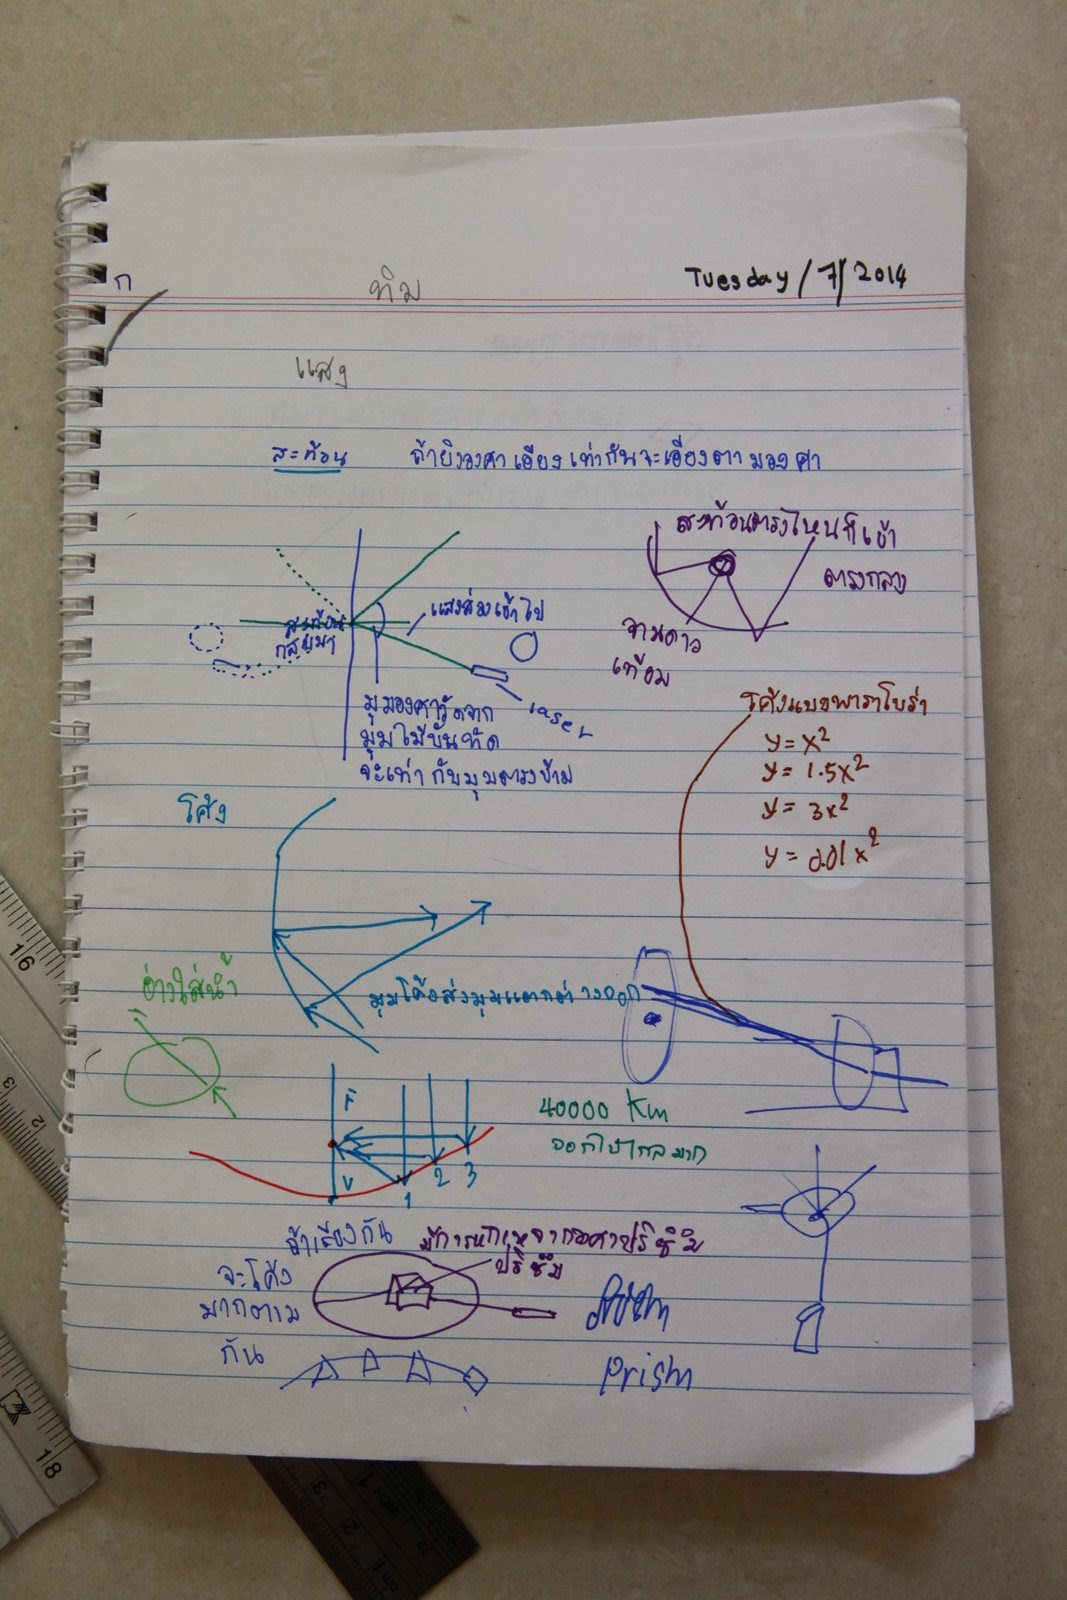 ก
ทิม
Tuesday/7/2014
แสง
สะท้อน ถ้ายิงองศาเอียงเท่ากันจะเอียงตามองศา
สะท้อนตรงไหนก็เข้า
ตรงกลาง
จานดาว
เทียม
แสงส่องเข้าไป
สะท้อน
กลับมา
laser
มุมองศาวัดจาก
มุมไม้บันทัด
จะเท่ากับมุมตรงข้าม
โค้งแบบพาราโบร่า
y = x²
y = 1.5x²
y = 3x²
y = 0.01x²
โค้ง
อ่างใส่น้ำ
มุมโค้งส่งมุมแตกต่างออก
F
V
1 2 3
40000 Km
ออกไปไกลมาก
ถ้าเรียงกัน
จะโค้ง
มากตาม
กัน
มีการหักเหจากองศาปริซึม
ปริซึม
Prism